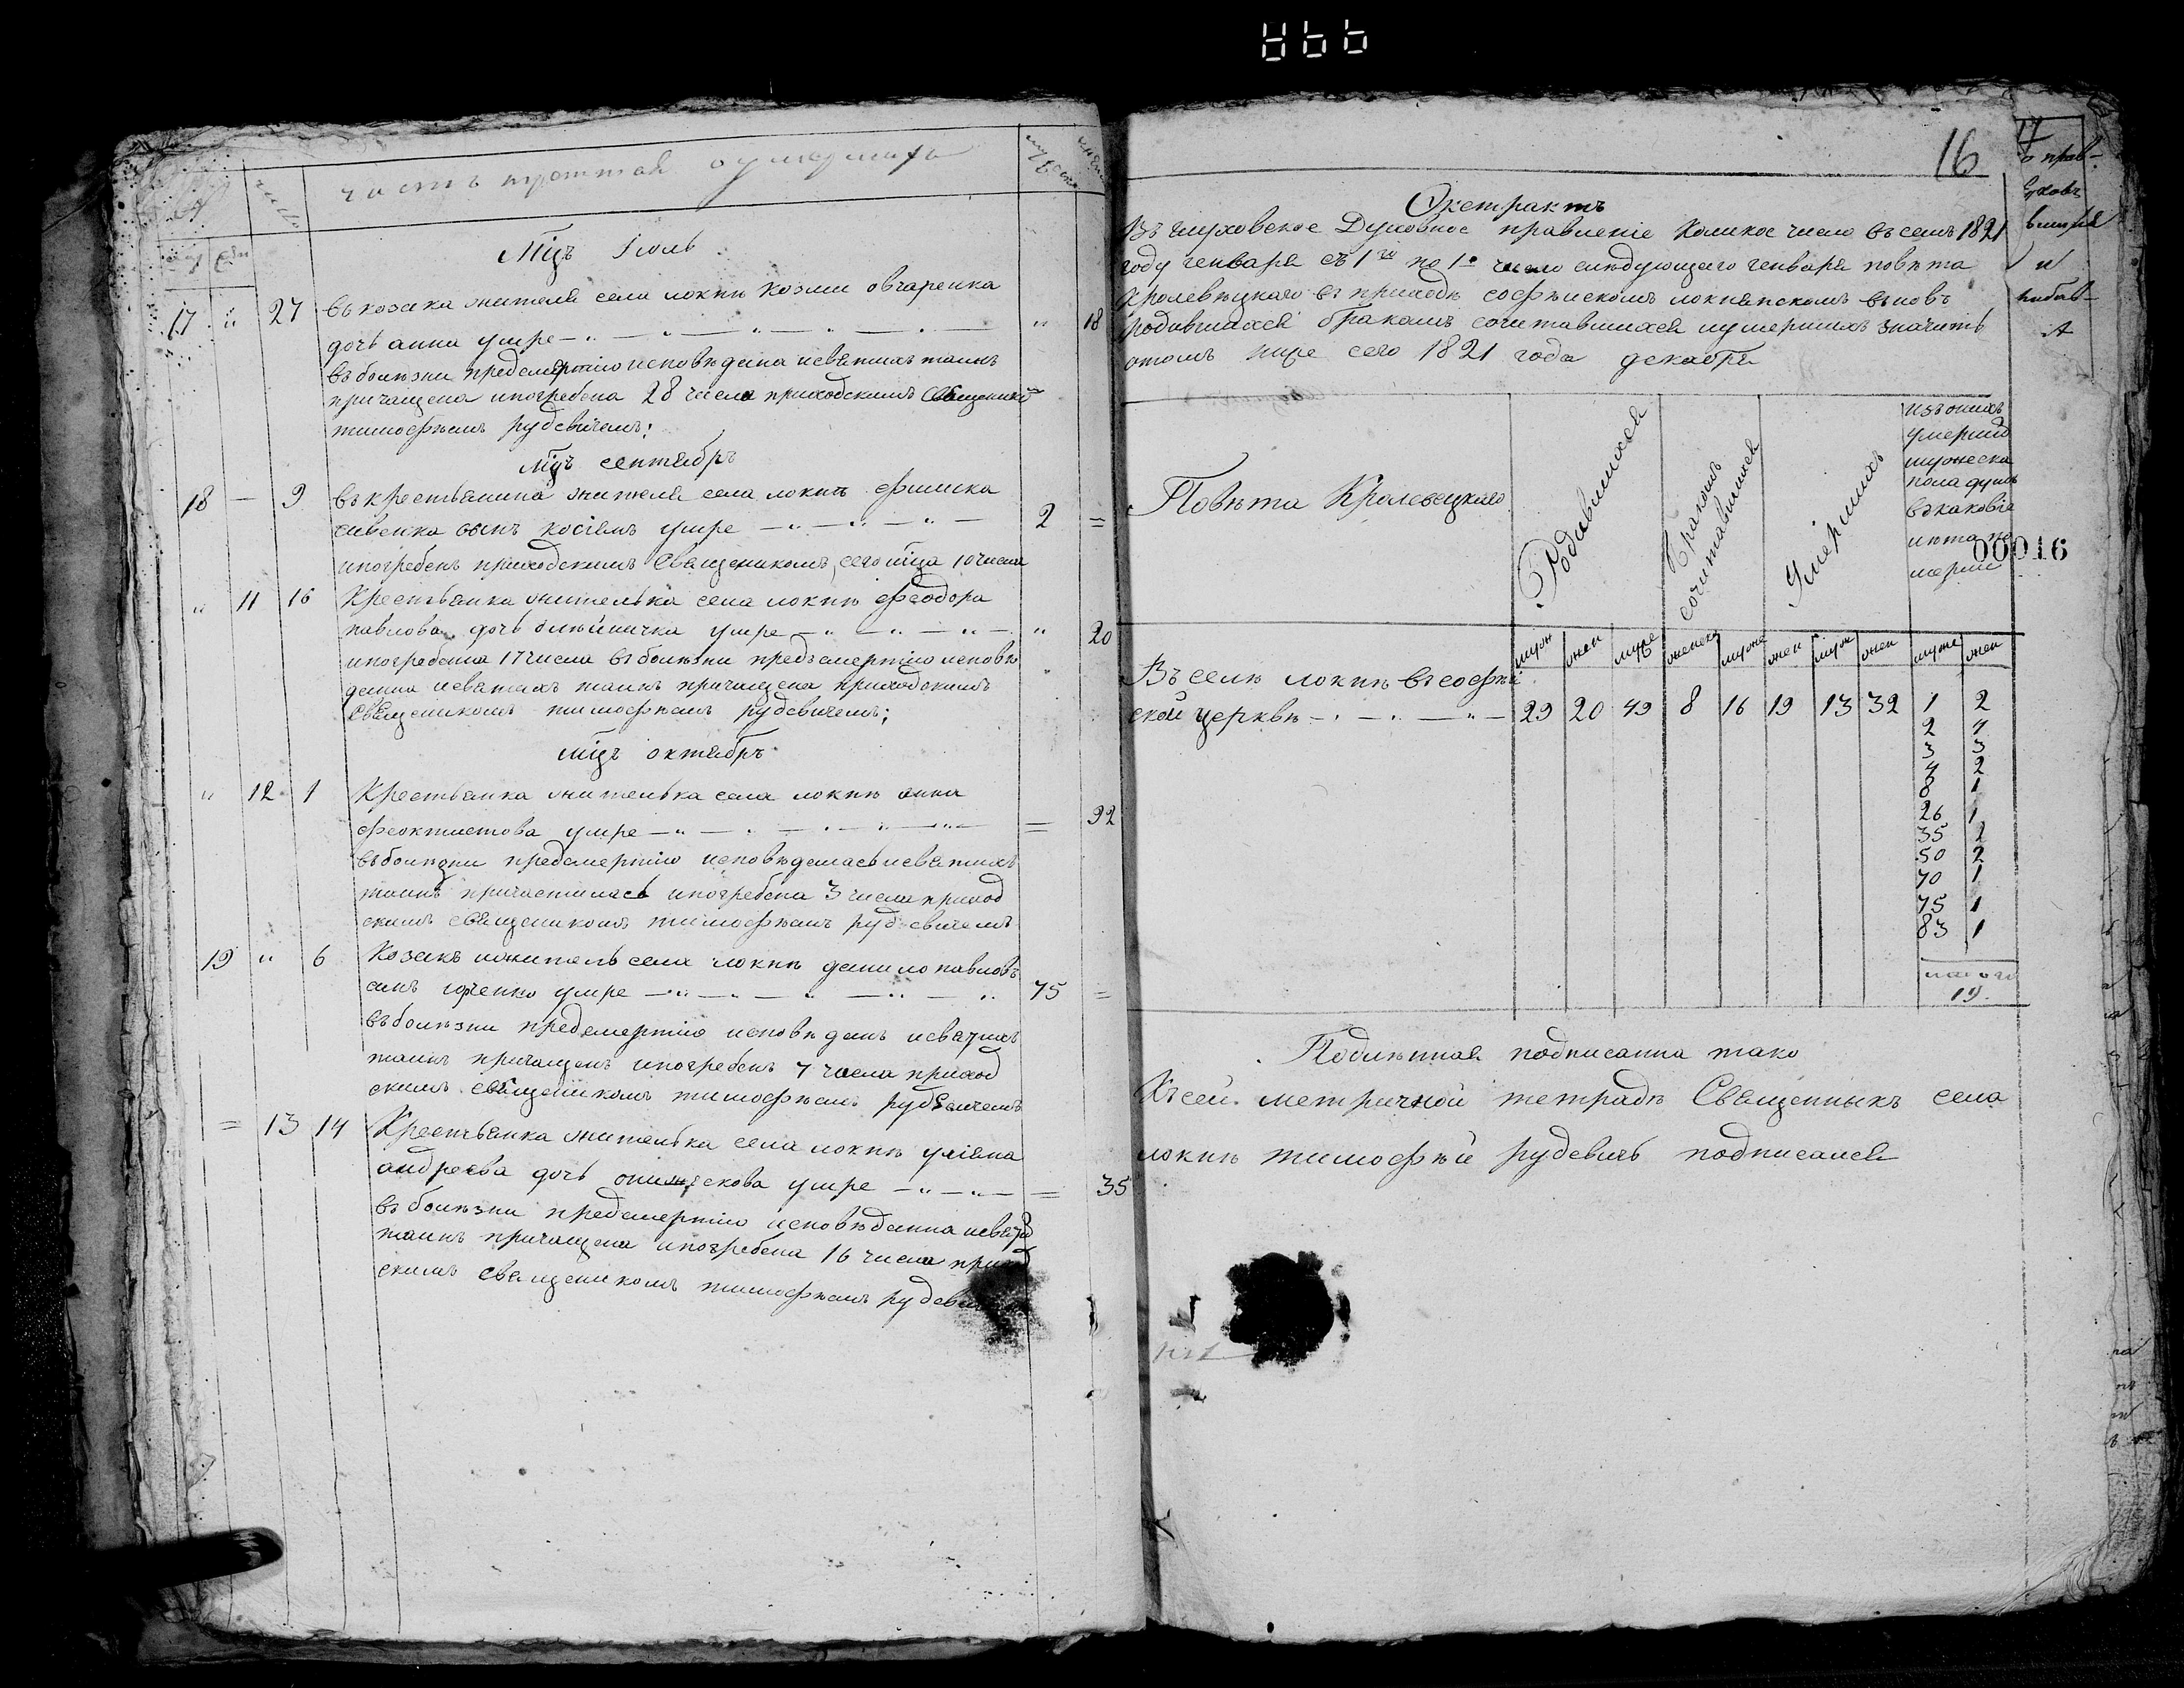 часть треттая о умершихъ
число
Мцъ Іюль
17 " 27 въ козака жителя села локнѣ козми овчаренка
дочь анна умре " 18
въ болѣзни предсмертію исповѣдана исвятихъ таинъ
причащена ипогребена 28 числа приходскимъ Священико
тимофѣемъ рудевичемъ;
мцъ сентябръ
18 — 9 въ крестьянина жителя села локнѣ
сынъ умре 2 =
ипогребенъ приходскимъ Священикомъ, сего мца 10 числа
" 11 16 Крестьянка жителька села локнѣ феодора
павлова дочь олѣйничка умре " 20
ипогребенна 17 числа въ болѣзни предъсмертію исповѣ
данна исвятихъ таинъ причащена приходскимъ
Священикомъ тимофѣемъ рудевичемъ;
мцъ октябръ
" 12 1 Крестьянка жителька села локнѣ анна
феоктистова умре = 92
въ болѣзни предсмертію исповѣдалась исвятихъ
таинъ причастилась ипогребена 3 числа приход
скимъ священикомъ тимофѣемъ рудевичемъ
19 " 6 Козакъ ижитель села локнѣ данило павловъ
синъ умре 75 =
въ болѣзни предсмертію исповѣданъ исвятихъ
таинъ причащенъ ипогребенъ 7 числа приход
скимъ священикомъ тимофѣемъ рудевичемъ
= 13 14 Крестьянка жителька села локнѣ уліяна
андреева дочь умре = 35
въ болѣзни предсмертію исповѣданна
таинъ причащена ипогребена 16 числа приход
скимъ священикомъ тимофѣемъ
16
17
Экстрактъ
Въ глуховское Духовное правленіе Коликое число въ семъ 1821
году генваря съ 1го по 1е число слѣдующаго генваря повѣта
Кролевѣцкаго въ приходѣ софѣискомъ локнянскомъ вновъ
родившихся бракомъ сочитавшихся иумершихъ значитъ
отомъ ниже сего 1821 года декабря
Повѣта Кролевецкаго
Родившихся
Бракомъ сочитавшихся
Умершихъ
изъ онихъ
умерших
мужеска
пола душъ
въ каковіе
иста
00016
муж жен муже женск муже жен муж жен муже жен
Въ селѣ локнѣ въ софѣи
ской церквѣ 29 20 49 8 16 19 13 32 1 2
2 4
3 3
4 2
8 1
26 1
35 2
50 2
70 1
75 1
83 1
19
Подлѣнная подписанна тако
Къ сей метричной тетрадѣ Священныкъ села
локнѣ тимофѣй рудевичъ подписался